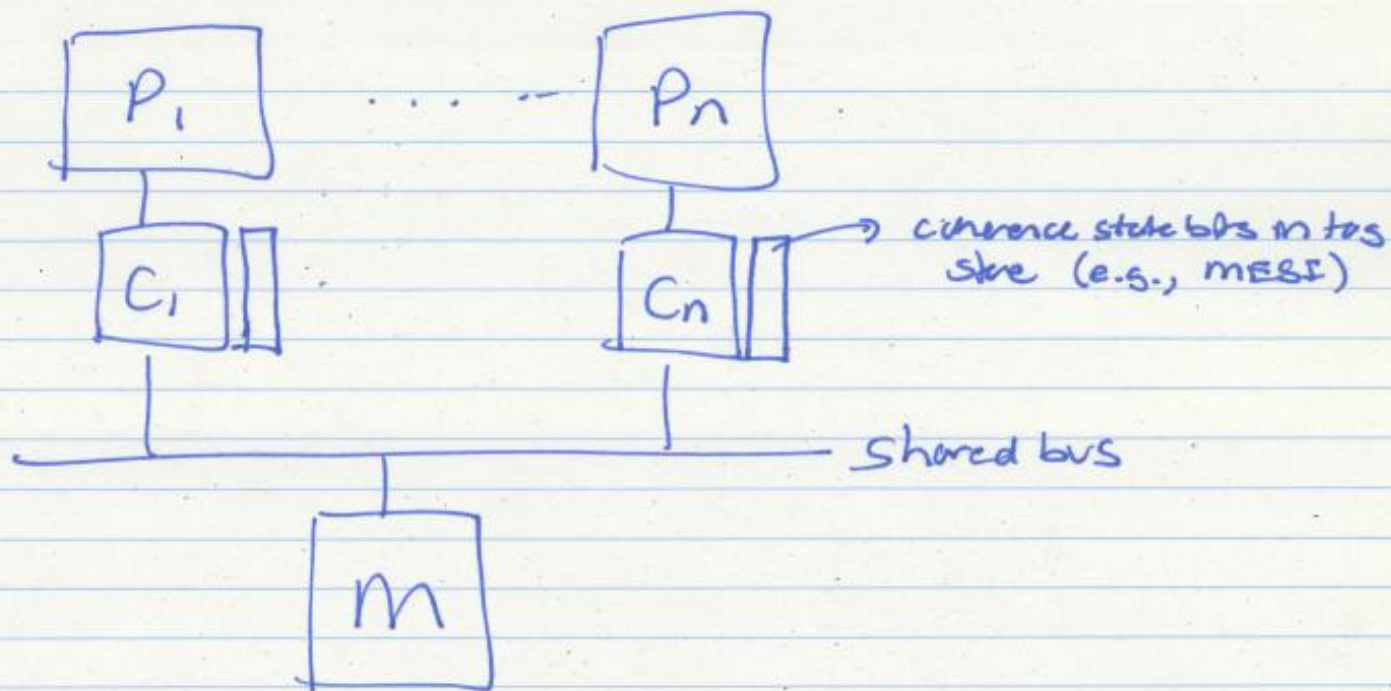 P₁ .... -- Pn
C₁
Cn
coherence state bits in tag
store (e.g., MESI)
Shared bus
M